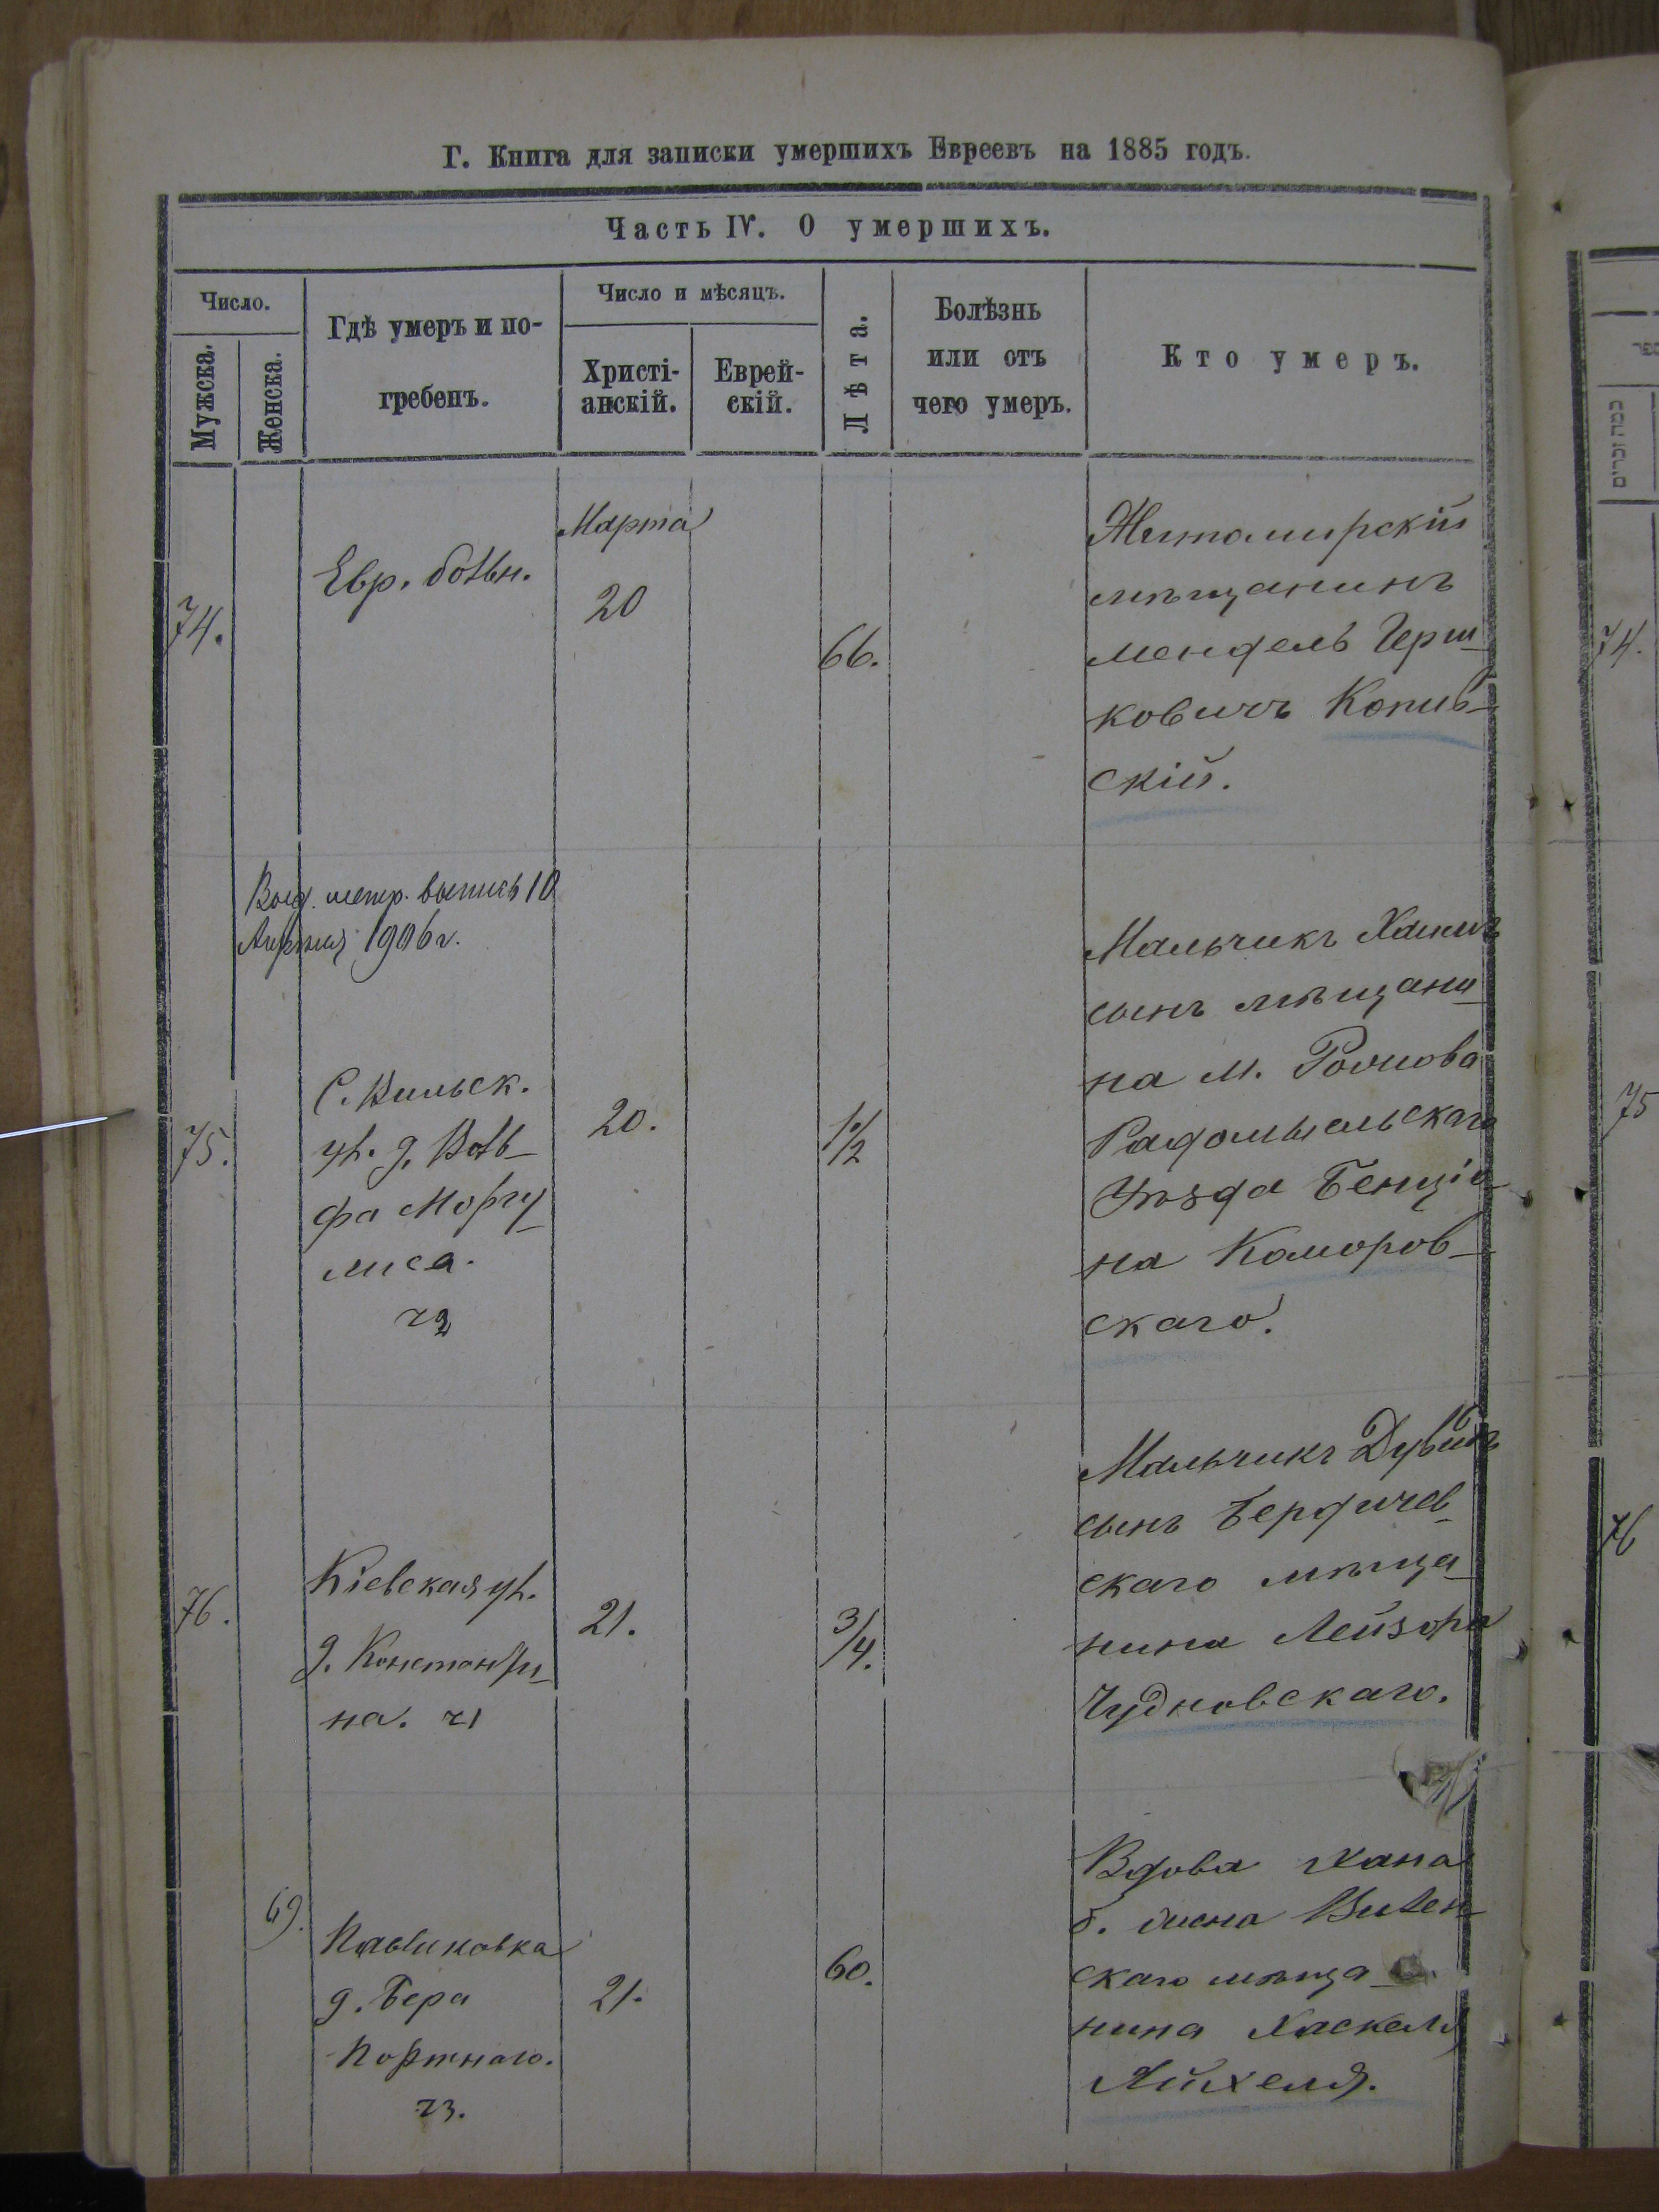 Г. Книга для записки умершихъ Евреевъ на 1885 годъ.
Часть IV. О умершихъ.
Число.
Мужска.
Женска.
Гдѣ умеръ и по-
гребенъ.
Число и мѣсяцъ.
Христі-
анскій.
Еврей-
скій.
Лѣта.
Болѣзнь
или отъ
чего умеръ.
Кто умеръ.
74.
Евр. больн.
Марта
20
66.
Житомирскій
мѣщанинъ
Мендель Герш
ковичъ Копив-
скій.
Выд. метр. выпись 10
Апрѣля 1906 г.
75.
С. Вильск.
ул. д. Воль-
фа Моргу
лиса.
ч2
20.
1/2
Мальчикъ
сынъ мѣщани
на м.
Радомысльскаго
Уѣзда Бенціо
на Коморов-
скаго.
76.
Кіевская ул.
д. Константи
на. ч1
21.
3/4.
Мальчикъ
сынъ Бердичев
скаго мѣща
нина Лейзора
Чудновскаго.
69.
д. Бера
Портнаго.
ч3.
21.
60.
Вдова Хана
б. жена Вилен
скаго мѣща
нина Хаскеля
Айхеля.
74.
75
76
כמה זכרים